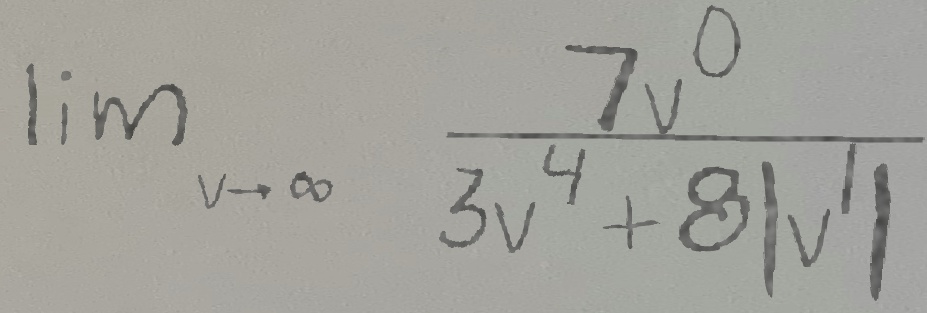 \lim_{v \to \infty} \frac{7v^0}{3v^4 + 8|v^1|}